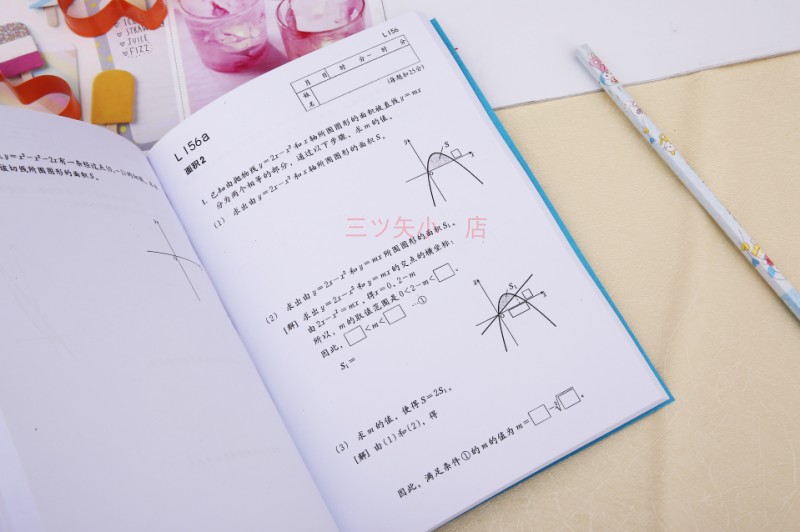 JUICE
FIZZ
L156
月 日 时 分~ 时 分
姓名
(每题扣25分)
L156a
面积2
1. 已知由抛物线 y=2x-x² 和 x 轴所围图形的面积被直线 y=mx
分为两个相等的部分, 通过以下步骤, 求 m 的值。
(1) 求出由 y=2x-x² 和 x 轴所围图形的面积 S。
y
S
2
x
三ツ矢小 店
(2) 求出由 y=2x-x² 和 y=mx 所围图形的面积 S₁。
[解] 求出 y=2x-x² 和 y=mx 的交点的横坐标:
由 2x-x²=mx, 得x=0, 2-m
所以, m 的取值范围是 0<2-m<□。
因此, □<m<□ …①
S₁=
S₁
x
(3) 求 m 的值, 使得 S=2S₁。
[解] 由(1)和(2), 得
因此, 满足条件①的 m 的值为 m=□-³√□。